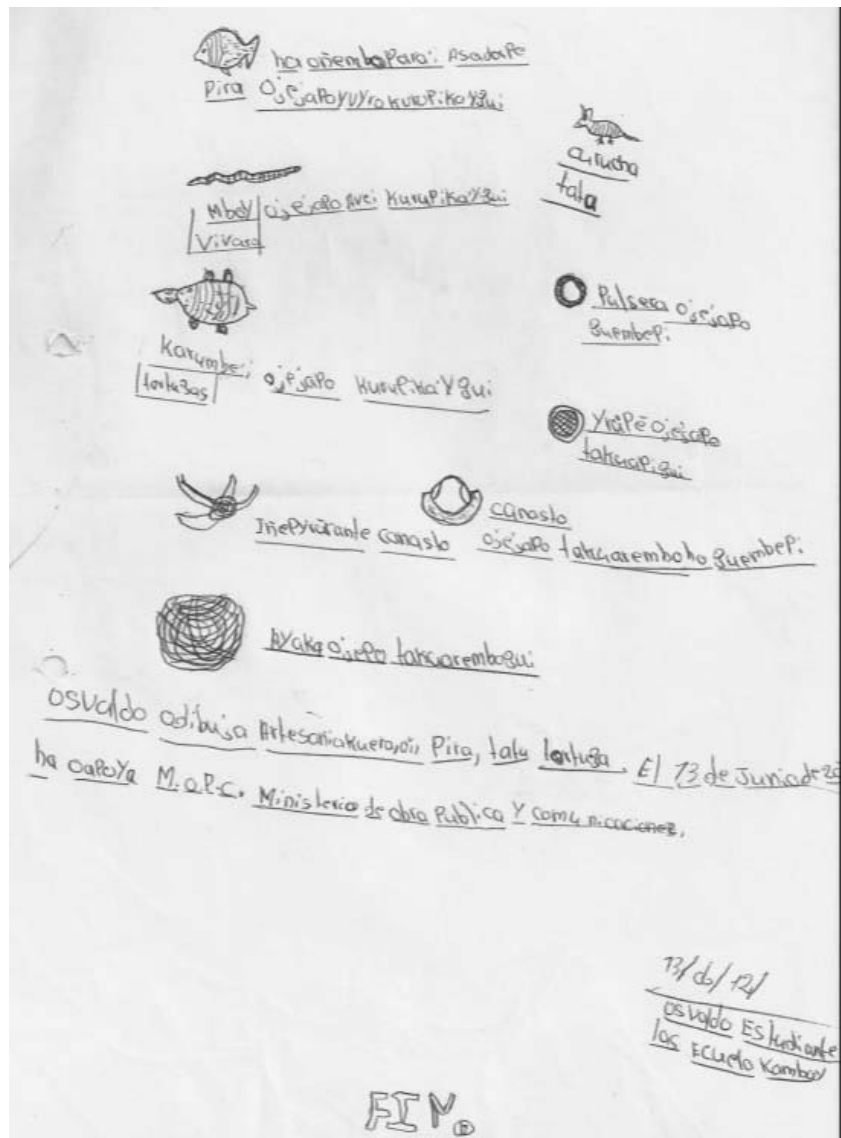 ha oñembopara'i Asadorpe
Pira ojejapo yvyra kurupika'ygui
curucha
tata
Mboy ojejapo Avei kurupika'ygui
Vivara
Pulsera ojejapo
guembepi
Karumbe'i ojejapo kurupika'ygui
tortugas
Yrãpẽ ojejapo
takuapigui
Iñepyrũrante canasto
canasto
ojejapo takuaremboho guembepi.
Ayaka ojepo takuarembogui
Osvaldo odibuja Artesania Pira, tatu tortuga. El 13 de Junio de
ha oapoya M.o.P.C. Ministerio de obra Publica Y comunicacionez.
13/06/12/
Osvaldo Estudiante
las Ecuelo Kamboy
FIN.